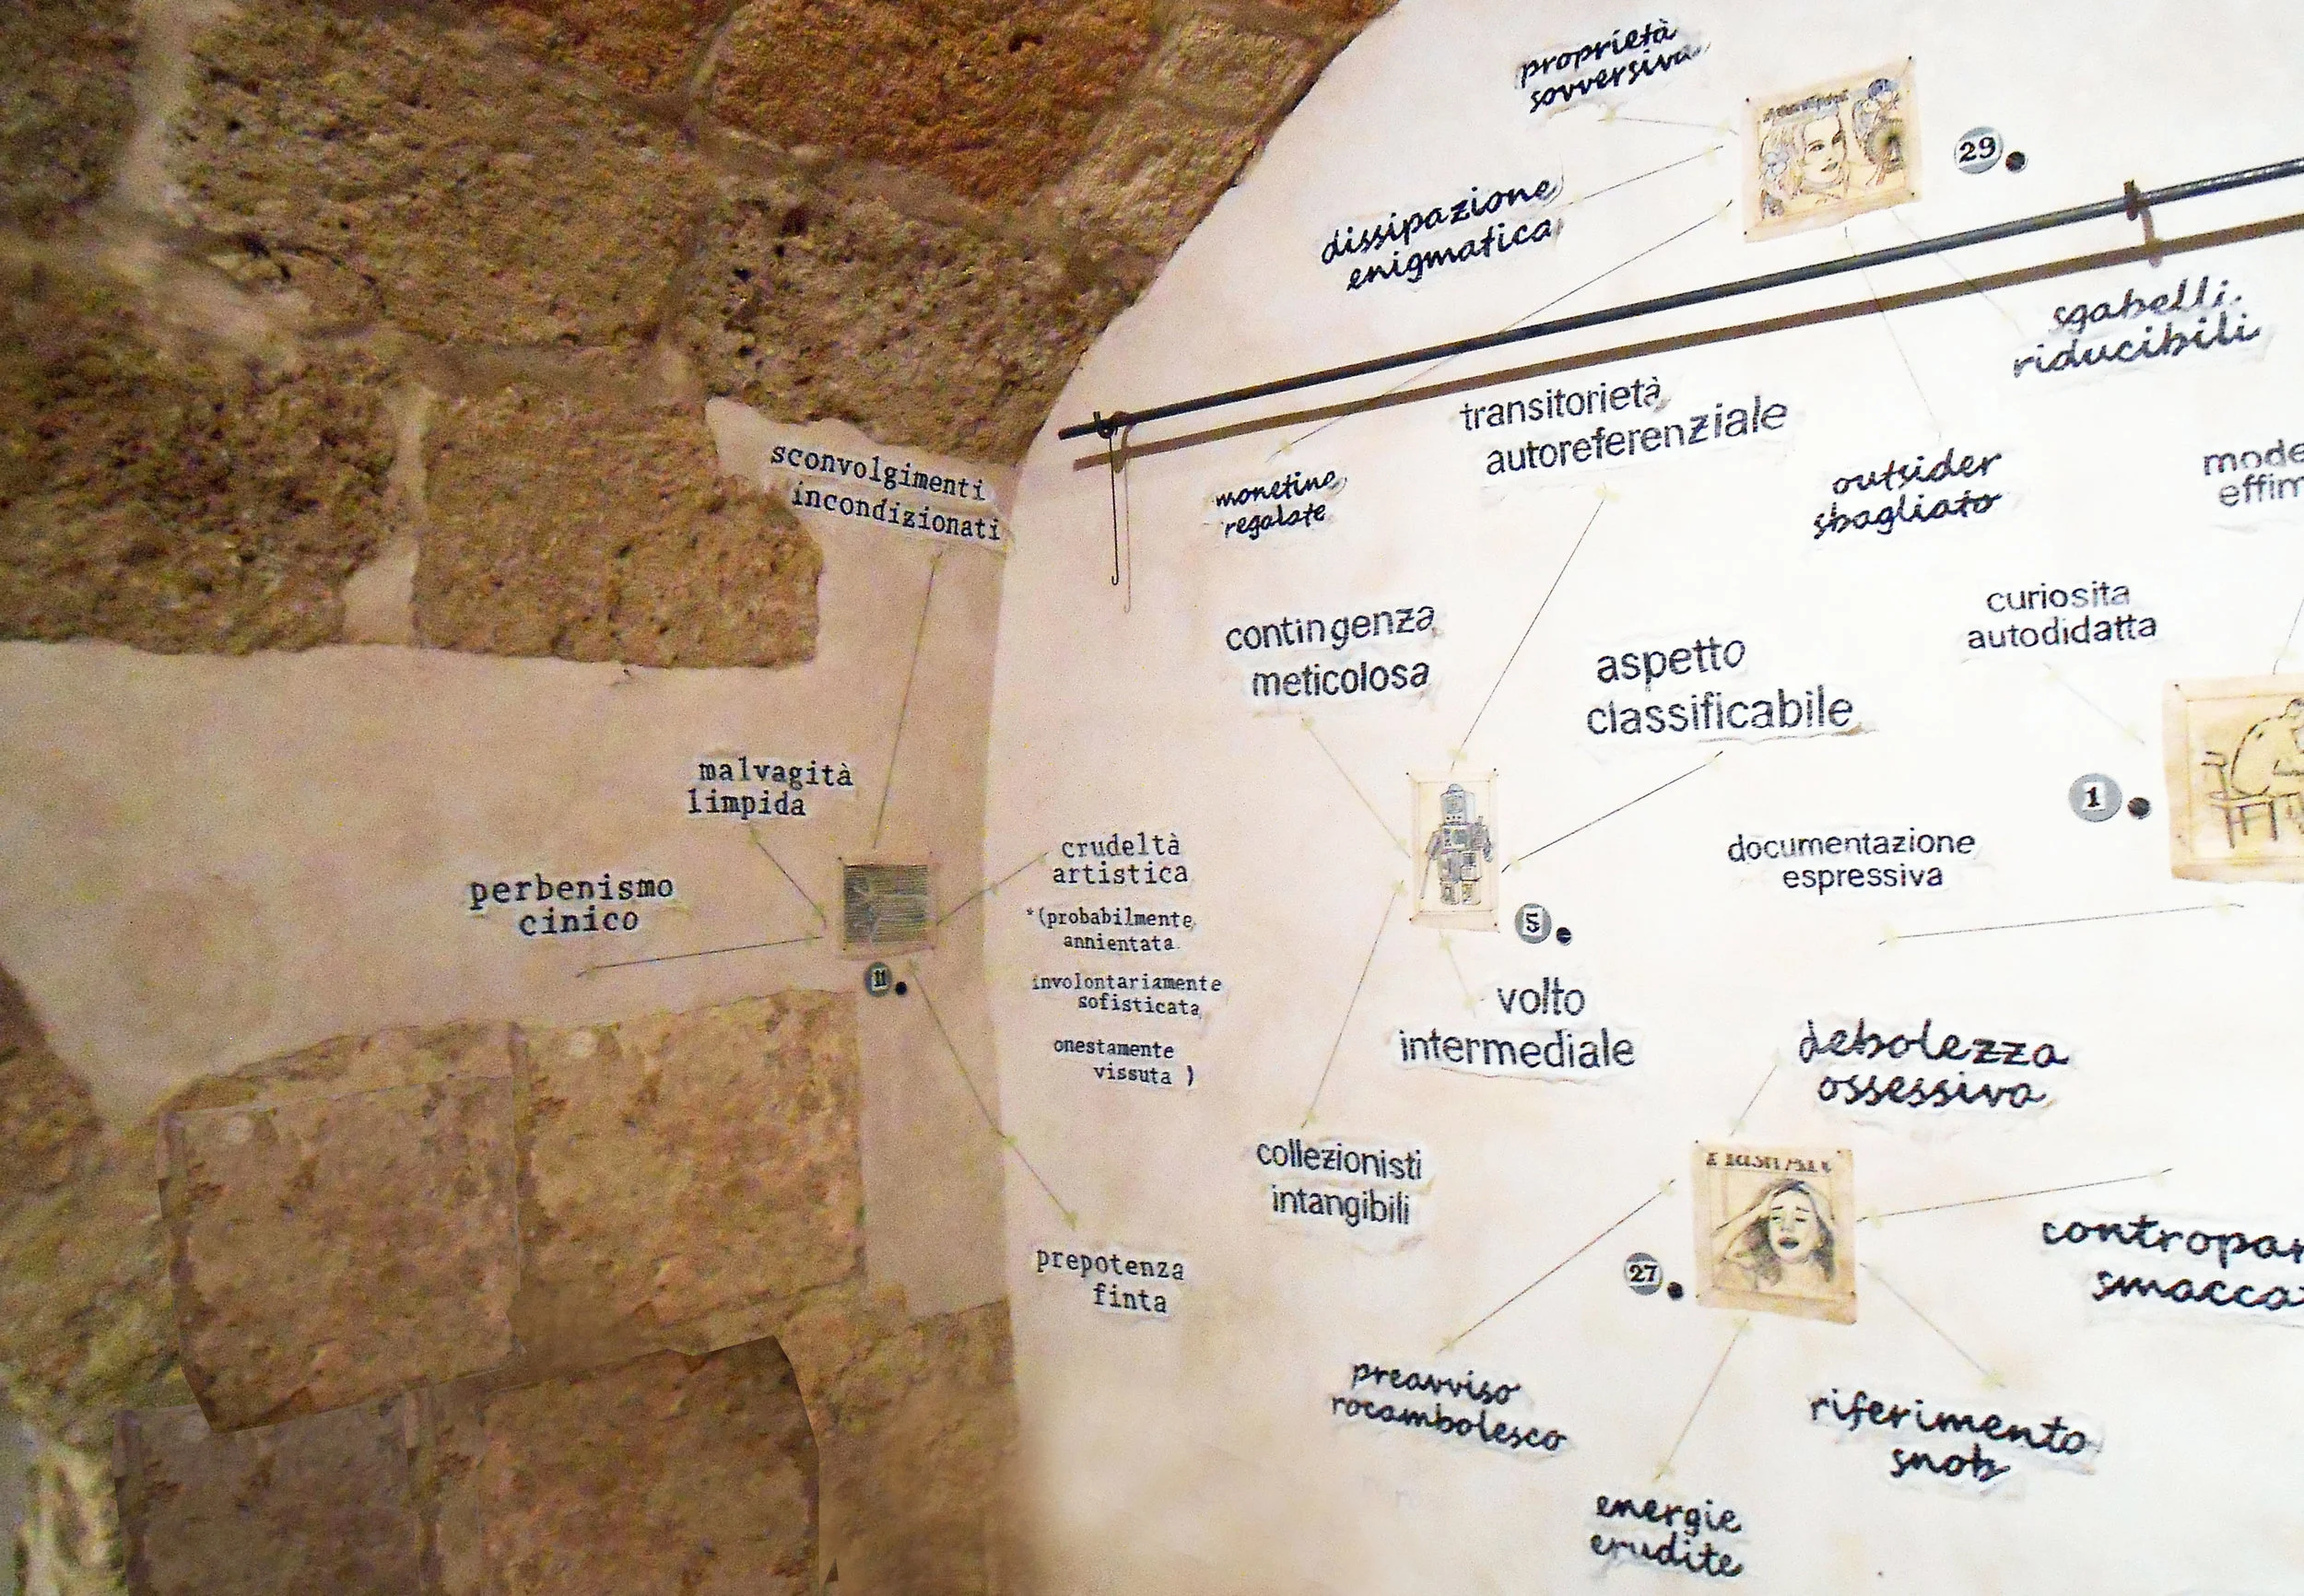 proprietà
sovversiva
29
dissipazione
enigmatica
sgabelli
riducibili
transitorietà
autoreferenziale
sconvolgimenti
incondizionati
monetine
regalate
outsider
sbagliato
curiosita
autodidatta
contingenza
meticolosa
aspetto
classificabile
1
malvagità
limpida
documentazione
espressiva
crudeltà
artistica
*(probabilmente
annientata
involontariamente
sofisticata
onestamente
vissuta )
perbenismo
cinico
11
5
volto
intermediale
debolezza
ossessiva
collezionisti
intangibili
Flash Art
27
prepotenza
finta
preavviso
rocambolesco
riferimento
snob
energie
erudite